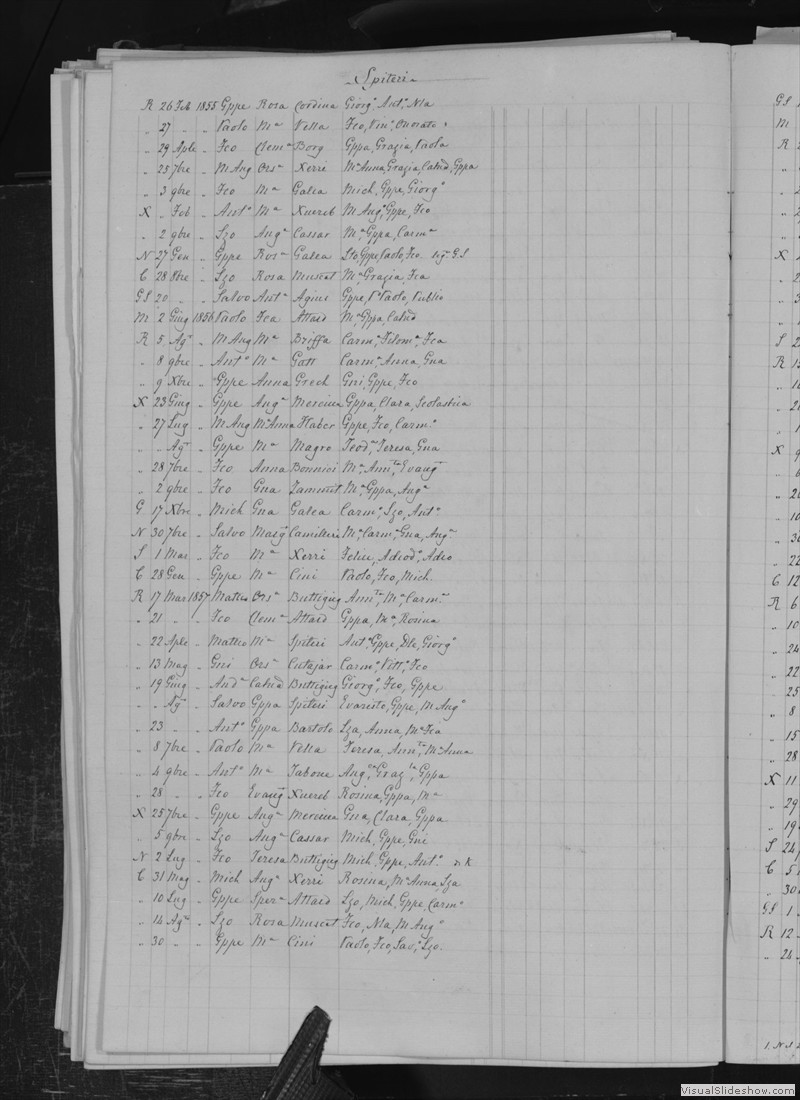 Spiteri
R 26 Feb 1855 Gppe Rosa Cordina Giorgº, Antº, Nla
„ 27 „ „ Paolo Mª Vella Fco, Vinº, Onorato
„ 29 Aple „ Fco Clemª Borg Gppa, Grazia, Paola
„ 25 7bre „ M Ang Orsª Xerri Mª Anna, Grazia, Catnd, Gppa
„ 3 9bre „ Fco Mª Galea Mich, Gppe, Giorgº
X „ Feb „ Antº Mª Xuereb M Angº, Gppe, Fco
„ 2 9bre „ Lzo Angª Cassar Mª, Gppa, Carmª
N 27 Gen „ Gppe Rosª Galea Gppe, Paolo, Fco G.S
C 28 8bre „ Lzo Rosa Muscat Mª, Grazia, Fca
GS 20 „ „ Salvo Antª Agius Gppe, Paolo, Publio
M 2 Giug 1856 Paolo Fca Attard Mª, Gppa, Catnd
R 5 Agº „ M Ang Mª Briffa Carmª, Filomª, Fca
„ 8 9bre „ Antº Mª Gatt Carmª, Anna, Gna
„ 9 Xbre „ Gppe Anna Grech Gni, Gppe, Fco
X 23 Giug „ Gppe Angª Mercieca Gppa, Clara, Scolastica
„ 27 Lug „ M Ang Mª Anna Haber Gppe, Fco, Carmº
„ „ Agº „ Gppe Mª Magro Teodª, Teresa, Gna
„ 28 7bre „ Fco Anna Bonnici Mª, Annta, Evangª
„ 2 9bre „ Fco Gna Zammit Mª, Gppa, Angª
G 17 Xbre „ Mich Gna Galea Carmº, Lzo, Antº
N 30 7bre „ Salvo Camilleri Mª, Carmª, Gna, Angª
S 1 Mar „ Fco Mª Xerri Felice, Adeodº, Adeo
C 28 Gen „ Gppe Mª Cini Paolo, Fco, Mich.
R 17 Mar 1857 Matteo Orsª Buttigieg Annta, Mª, Carmª
„ 21 „ „ Fco Clemª Attard Gppa, Mª, Rosina
„ 22 Aple „ Matteo Mª Spiteri Antº, Gppe, Giorgº
„ 13 Mag „ Gni Orsª Cutajar Carmº, Vittº, Fco
„ 19 Giug „ Andª Catnd Buttigieg Giorgº, Fco, Gppe
„ „ Agº „ Salvo Gppa Spiteri Evaristo, Gppe, M Angº
„ 23 „ „ Antº Gppa Bartolo Lza, Anna, Mª Fca
„ 8 7bre „ Paolo Mª Vella Teresa, Annta, Mª Anna
„ 4 9bre „ Antº Mª Tabone Angca, Grazla, Gppa
„ 28 „ „ Fco Evangª Xuereb Rosina, Gppa, Mª
X 25 7bre „ Gppe Angª Mercieca Gna, Clara, Gppa
„ 5 9bre „ Lzo Angª Cassar Mich, Gppe, Gni
N 2 Lug „ Fco Teresa Buttigieg Mich, Gppe, Antº K
C 31 Mag „ Mich Angª Xerri Rosina, Mª Anna, Lza
„ 10 Lug „ Gppe Sperª Attard Lzo, Mich, Gppe, Carmº
„ 14 Agº „ Lzo Rosa Muscat Fco, Nla, M Angº
„ 30 „ „ Gppe Mª Cini Paolo, Fco, Savº, Lzo.
GS
M
R
X
S
R
X
C 12
R 6
X 11
S 24
C 5
GS 1
R 12
VisualSlideshow.com